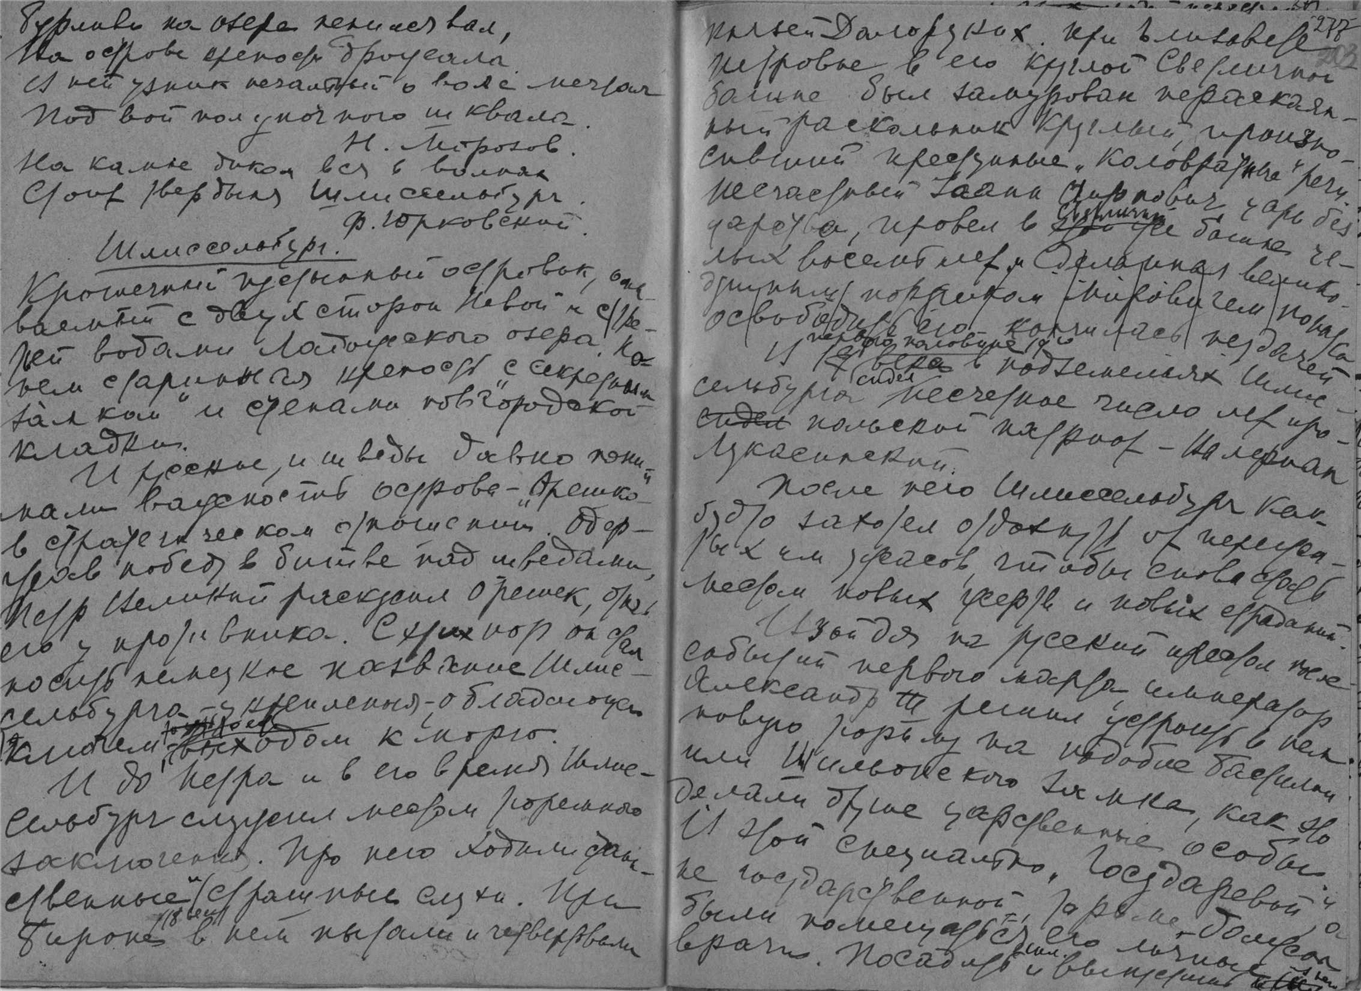 Бурливы на озере пенился вал,
На острове крепость дремала
И ней узник печальный о воле мечтал
Под вой полуночного шквала.
Н. Морозов.
На камне диком вся в волнах
Стоит твердыня Шлиссельбург.
Ф. Юрковский.
Шлиссельбург.
Крошечный пустынный островок, омы-
ваемый с двух сторон Невой и с тре-
тьей водами Ладожского озера. На
нем старинная крепость с "секретным
замком" и стенами новгородской
кладки.
И русские, и шведы давно пони-
мали важность острова - "Орешко"
в стратегическом отношении. Одер-
жав победу в битве над шведами,
Петр Великий раскусил Орешек, отняв
его у противника. С тех пор он стал
носить немецкое название Шлис-
сельбурга - укрепления, обладающего
ключем выходом к морю.
И до Петра и в его время Шлис-
сельбург служил местом тюремного
заключения. Про него ходили таин-
ственные страшные слухи. При
Бироне в нем пытали и четвертовали
277
203
князей Долгоруких. При Елизавете
Петровне в его круглой Светличной
башне был замурован нераскаян-
ный раскольник Круглый, произно-
сивший преступные "коловратные" речи.
Несчастный Иоанн Антонович, царь без
царства, провел в Светличной башне це-
лых восемь лет и сделанная велико-
душным поручиком Мировичем попытка
освободить его кончилась неудачей
И в первой половине в подземельях Шлис-
сельбурга сидел несчетное число лет
польский патриот - Валериан
Лукасинский.
После него Шлиссельбург как
будто захотел отдохнуть от пережи-
тых им ужасов, чтобы снова стать
местом новых жертв и новых страданий.
Взойдя на русский престол после
событий первого марта, император
Александр III решил устроить в нем
новую тюрьму на подобие Бастилии
или Шильонского замка, как это
делали другие царственные особы.
В этой специально "Государевой", а
не государственной тюрьме должны
были помещаться его личные
враги. Посадить и выпустить